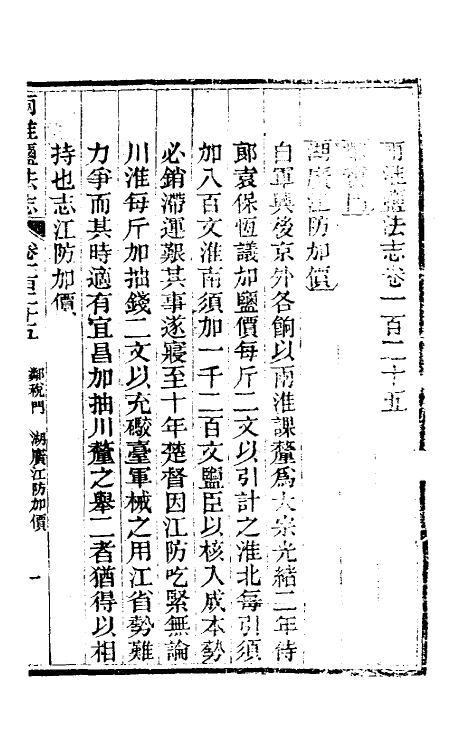 兩淮鹽法志卷一百二十五
湖廣江防加價
自軍興後京外各餉以兩淮課釐爲大宗光緒二年侍
郎袁保恆議加鹽價每斤二文以引計之淮北每引須
加八百文淮南須加一千二百文鹽臣以核入成本勢
必銷滯運艱其事遂寢至十年楚督因江防吃緊無論
川淮每斤加抽錢二文以充礮臺軍械之用江省勢難
力爭而其時適有宜昌加抽川釐之舉二者猶得以相
持也志江防加價
兩淮鹽法志 卷一百二十五 鄰稅門 湖廣江防加價 一